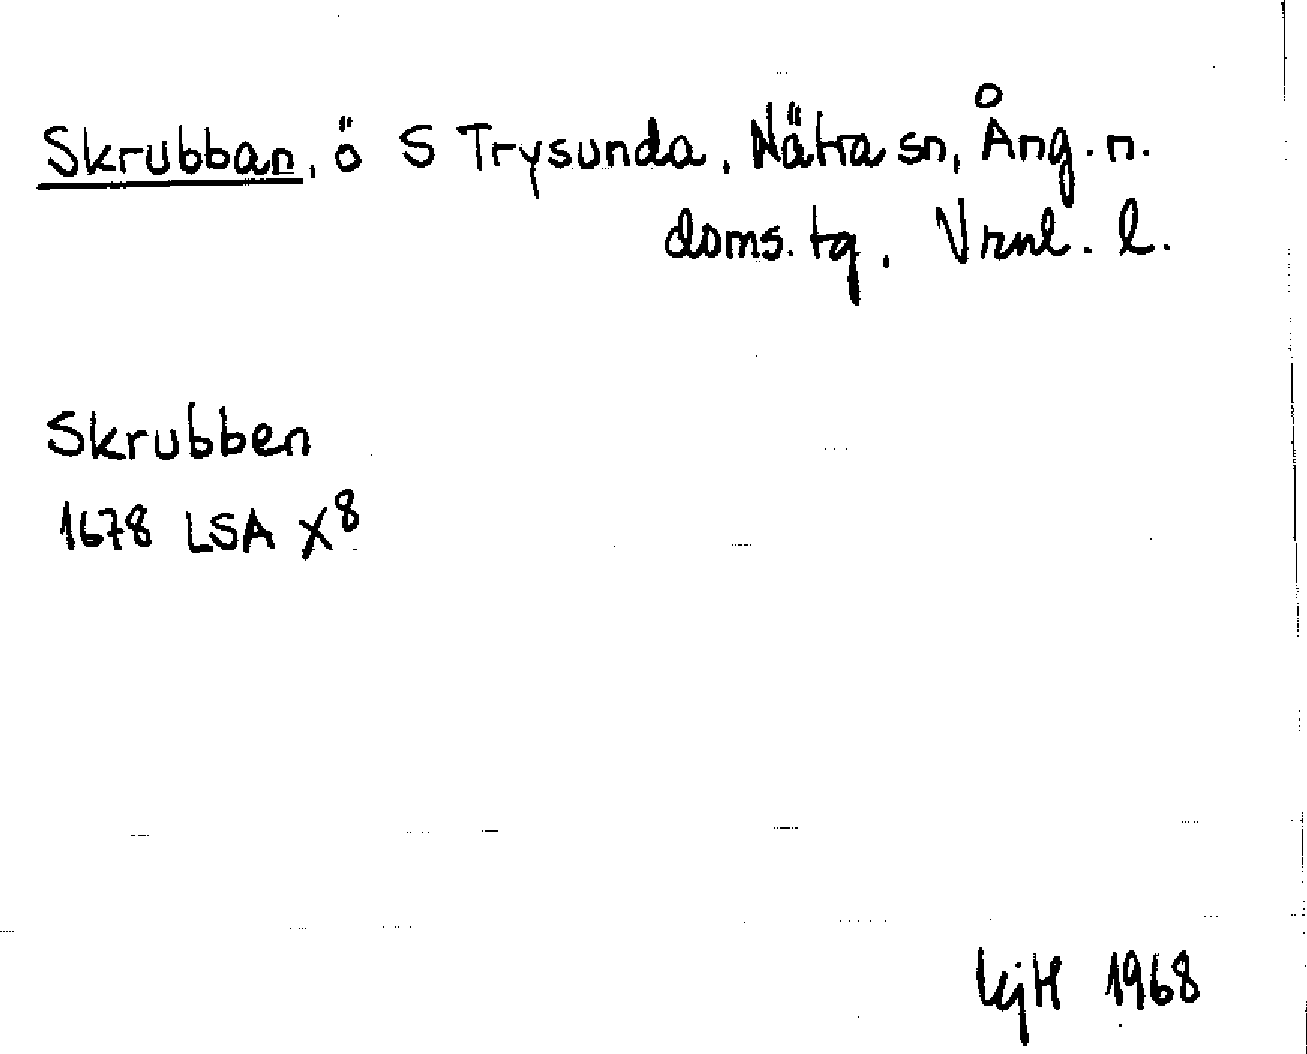 Skrubban, ö S Trysunda, Nätra sn, Ång. n.
doms. tg, Vrnl. l.
Skrubben
1678 LSA X⁸
KjH 1968